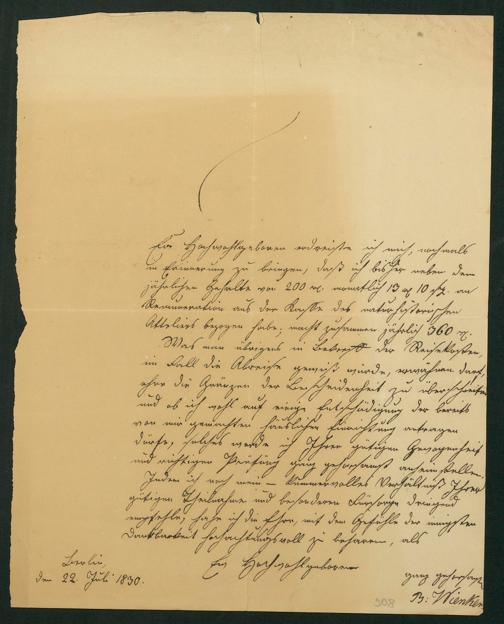 Ew. Hochwohlgeboren erdreiste ich mich, nochmals
in Erinnerung zu bringen, daß ich bisher neben dem
jährlichen Gehalte von 200 rℓ. monatlich 13 rℓ 10 sg. an
Remuneration aus der Kasse des naturhistorischen
Atteliers bezogen habe, macht zusammen jährlich 360 rℓ.
Was nun übrigens in Betreff der Reisekosten,
im Fall die Abreise gewiß würde, erwähnen darf,
ohne die Gränzen der Bescheidenheit zu überschreiten
und ob ich wohl auf einige Entschädigung der bereits
von mir gemachten häuslichen Einrichtung antragen
dürfte, solches werde ich Ihrer gütigen Gewogenheit
und richtigen Prüfung ganz gehorsamst anheim stellen.
Indem ich noch mein – kummervolles Verhältniß Ihrer
gütigen Theilnahme und besonderen Fürsorge dringend
empfehle, habe ich die Ehre, mit dem Gefühle der innigsten
Dankbarkeit hochachtungsvoll zu beharren, als
Ew. Hochwohlgeboren
Berlin,
den 22. Juli 1830.
ganz gehorsamster
B: Wienker
308